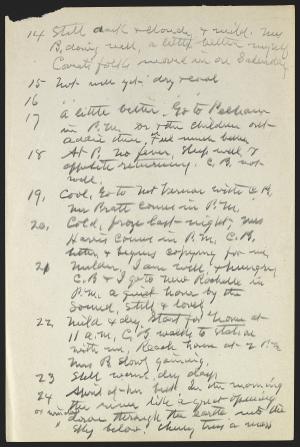 14 Still dark & cloudy & mild. Mrs
B. doing well, a little better myself
folks moved in on Saturday
15 Not well yet. dry & cool
16 " " " " "
17 A little better. Go to Pelham
in P.M. Dr & the children out-
there, feel much better
18 At P. no fever, sleep well &
appetite returning. C.B. not
well.
19, Cool, Go to Mt Vernon with C.B,
Mrs Pratt comes in P.M.
20, Cold, froze last night, Miss
Harris comes in P.M. C.B.
better, & begins copying for me,
21 Milder, I am well, & hungry,
C.B & I go to New Rochelle in
P.M. a quiet hour by the
Sound, Still & lovely,
22, Mild & dry, Start for home at
11 a.m, C.B. walks to station
with me, Reach home at 2 P.M
Mrs B slowly gaining,
23 Still warm, dry days,
24 in the morning
The river like a great opening
or window down through the earth into the
sky below.